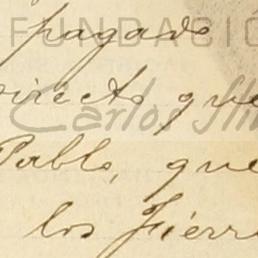 FUNDACIÓ
pagado
directo que
Carlos
Pablo, que
los fierro